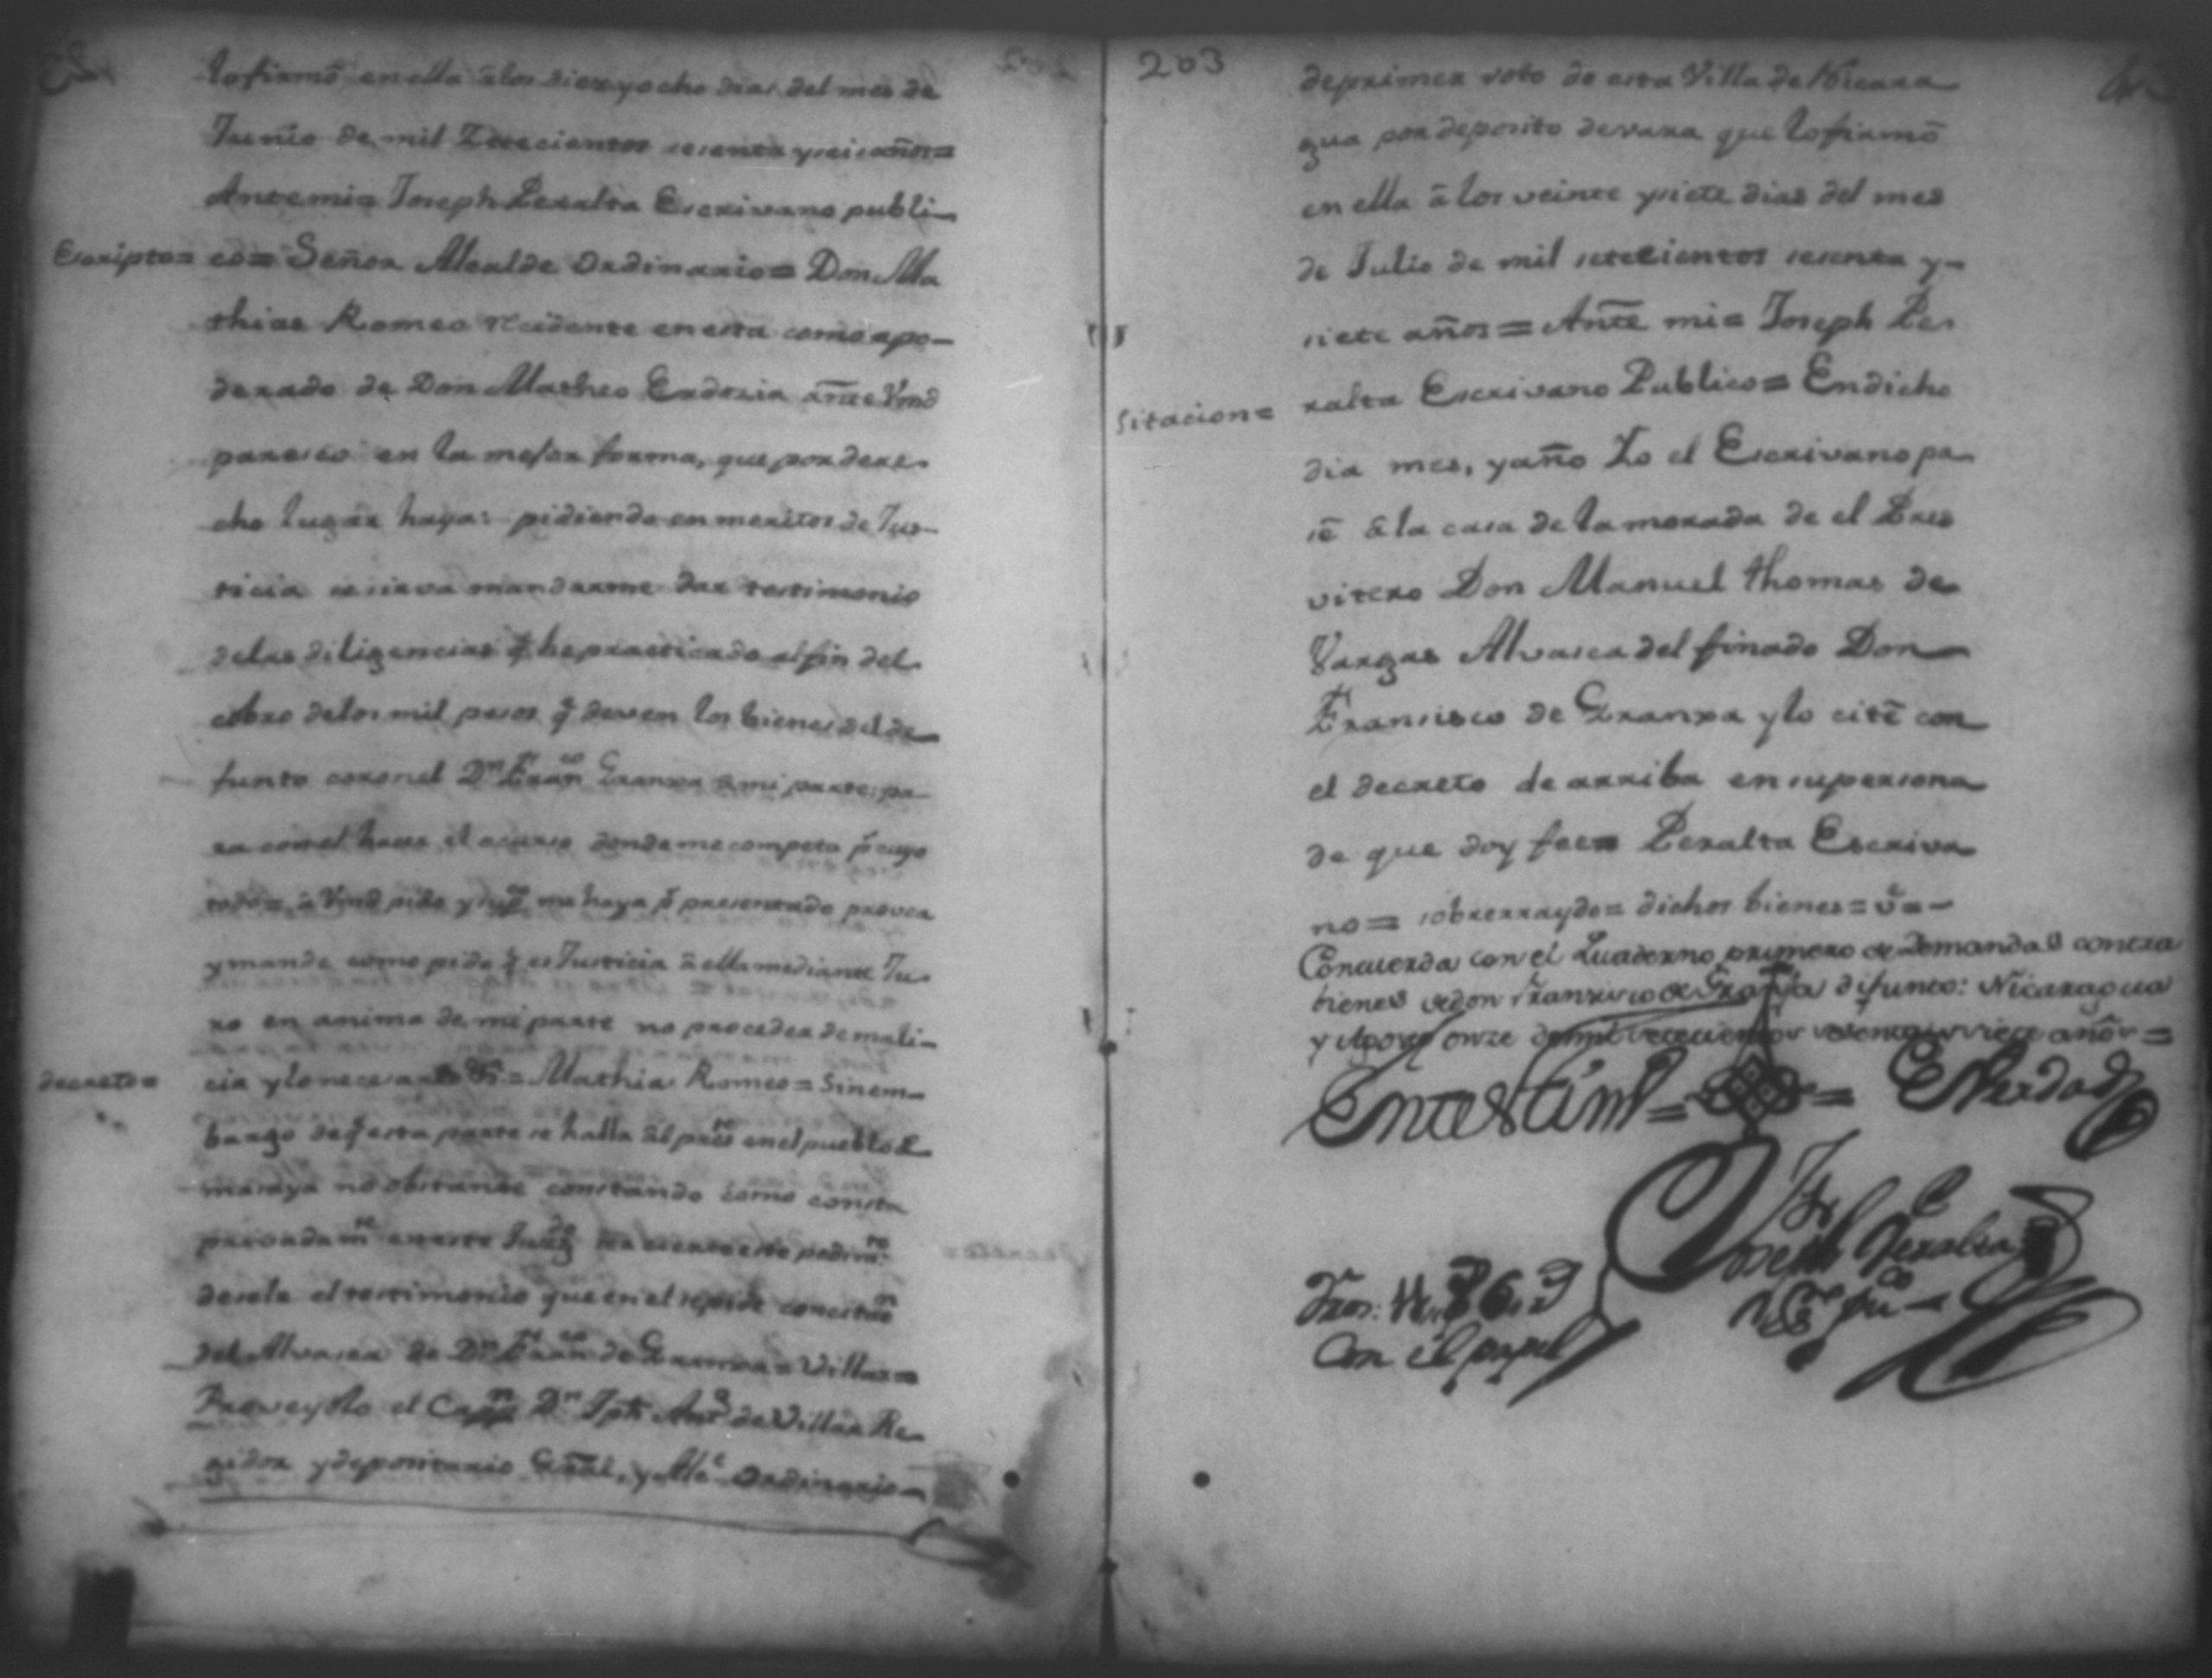 lo firmó en ella â los diez y ocho dias del mes de
Junio de mil Setecientos sesenta y seis años=
Antemi= Joseph Peralta Escrivano publi-
Escripto= co= Señor Alcalde Ordinario= Don Ma
thias Romeo recidente en esta como apo-
derado de Don Matheo Endozia ante Vmd
paresco en la mejor forma, que por dere-
cho lugar haya: pidiendo en meritos de Jus-
ticia se sirva mandarme dar testimonio
delas diligencias q̃ he practicado al fin del
cobro delos mil pesos q̃ deven los bienes del de
funto coronel Dn Franco Granxa a mi parte: pa-
ra con el hacer el ocurso donde me competa p̃ cuyo
todo= â Vmd pido y me haya p̃ presentado provea
y mande como pido q̃ es Justicia â ella mediante Ju-
ro en anima de mi parte no proceder de mali-
decreto= cia y lo necesario = Mathias Romeo= Sinem-
bargo de q̃ esta parte se halla al preste en el pueblo de
masaya no obstante constando como consta
privadamte en este Juzgdo este pedimto
desele el testimonio que en el se pide con citon
del Alvasea de Dn Franco de Granxa= Villar=
Proveydo el Cappn Dn Jph Anto de Villar Re-
gidor y depositario Gral, y Alle Ordinario
203
de primer voto de esta Villa de Nicara
gua por deposito de vara que lo firmó
en ella â los veinte y siete dias del mes
de Julio de mil setecientos sesenta y-
siete años= Ante mi= Joseph Pe-
Sitacion= ralta Escrivano Publico= En dicho
dia mes, y año Yo el Escrivano pa-
sé â la casa de la morada de el Pres
vitero Don Manuel thomas de
Vargas Alvasea del finado Don
Fransisco de Granxa y lo cité con
el decreto de arriba en su persona
de que doy fee= Peralta Escriva
no= sobrerraydo= dichos bienes= ṽa-
Concuerda con el Quaderno primero de Demandas contra
bienes de don Fransisco de Granxa difunto: Nicaragua
y Agosto onze de mil setecientos sesenta y siete años=
En testimº = = de Verdad
Joseph Peralta
Con el papel